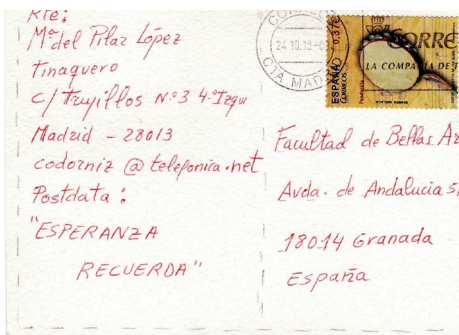 Rte:
Mª del Pilar López
Tinaquero
C/ Trujillos N.º 3 4.º Izqu
Madrid - 28013
codorniz @ telefonica.net
Postdata :
"ESPERANZA
RECUERDA"
CORREOS
24.10.13
CTA MADRID
ESPAÑA
CORREOS
0,37€
CORRE
LA COMPA IA DE T
Facultad de Bellas Ar
Avda. de Andalucia s
18014 Granada
España